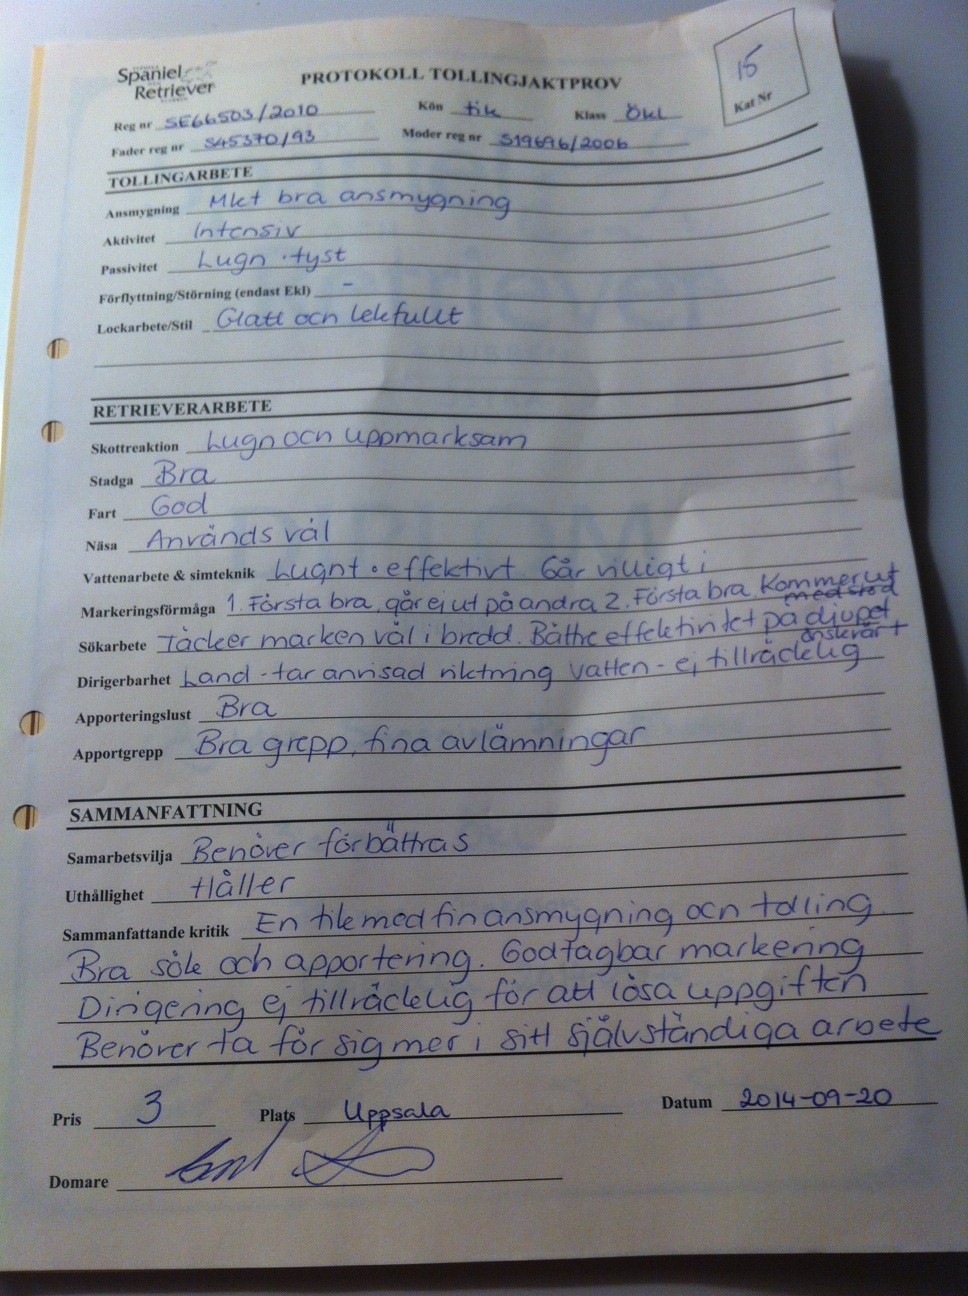 Spaniel
Retriever
PROTOKOLL TOLLINGJAKTPROV
15
Kat Nr
Reg nr SE66503/2010 Kön tik Klass ÖKL
Fader reg nr S45370/93 Moder reg nr S19696/2006
TOLLINGARBETE
Ansmygning Mkt bra ansmygning
Aktivitet Intensiv
Passivitet Lugn . tyst
Förflyttning/Störning (endast Ekl) -
Lockarbete/Stil Glatt och lekfullt
RETRIEVERARBETE
Skottreaktion Lugn och uppmärksam
Stadga Bra
Fart God
Näsa Används väl
Vattenarbete & simteknik Lugnt . effektivt Går villigt i
Markeringsförmåga 1. Första bra, går ej ut på andra 2. Första bra. Kommer ut med stöd
Sökarbete Täcker marken väl i bredd. Bättre effektivitet på djupet önskvärt
Dirigerbarhet Land - tar anvisad riktning vatten - ej tillräcklig
Apporteringslust Bra
Apportgrepp Bra grepp, fina avlämningar
SAMMANFATTNING
Samarbetsvilja Behöver förbättras
Uthållighet Håller
Sammanfattande kritik En tik med fin ansmygning och tolling.
Bra sök och apportering. Godtagbar markering
Dirigering ej tillräcklig för att lösa uppgiften
Behöver ta för sig mer i sitt självständiga arbete
Pris 3 Plats Uppsala Datum 2014-09-20
Domare